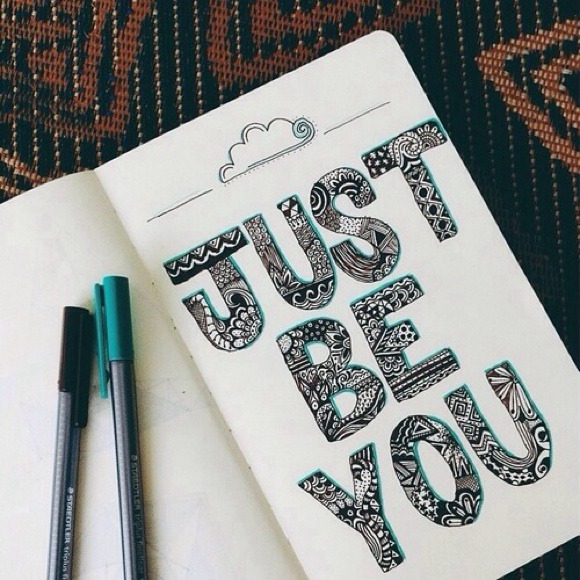 JUST
BE
YOU
STAEDTLER triplus
STAEDTLER triplus